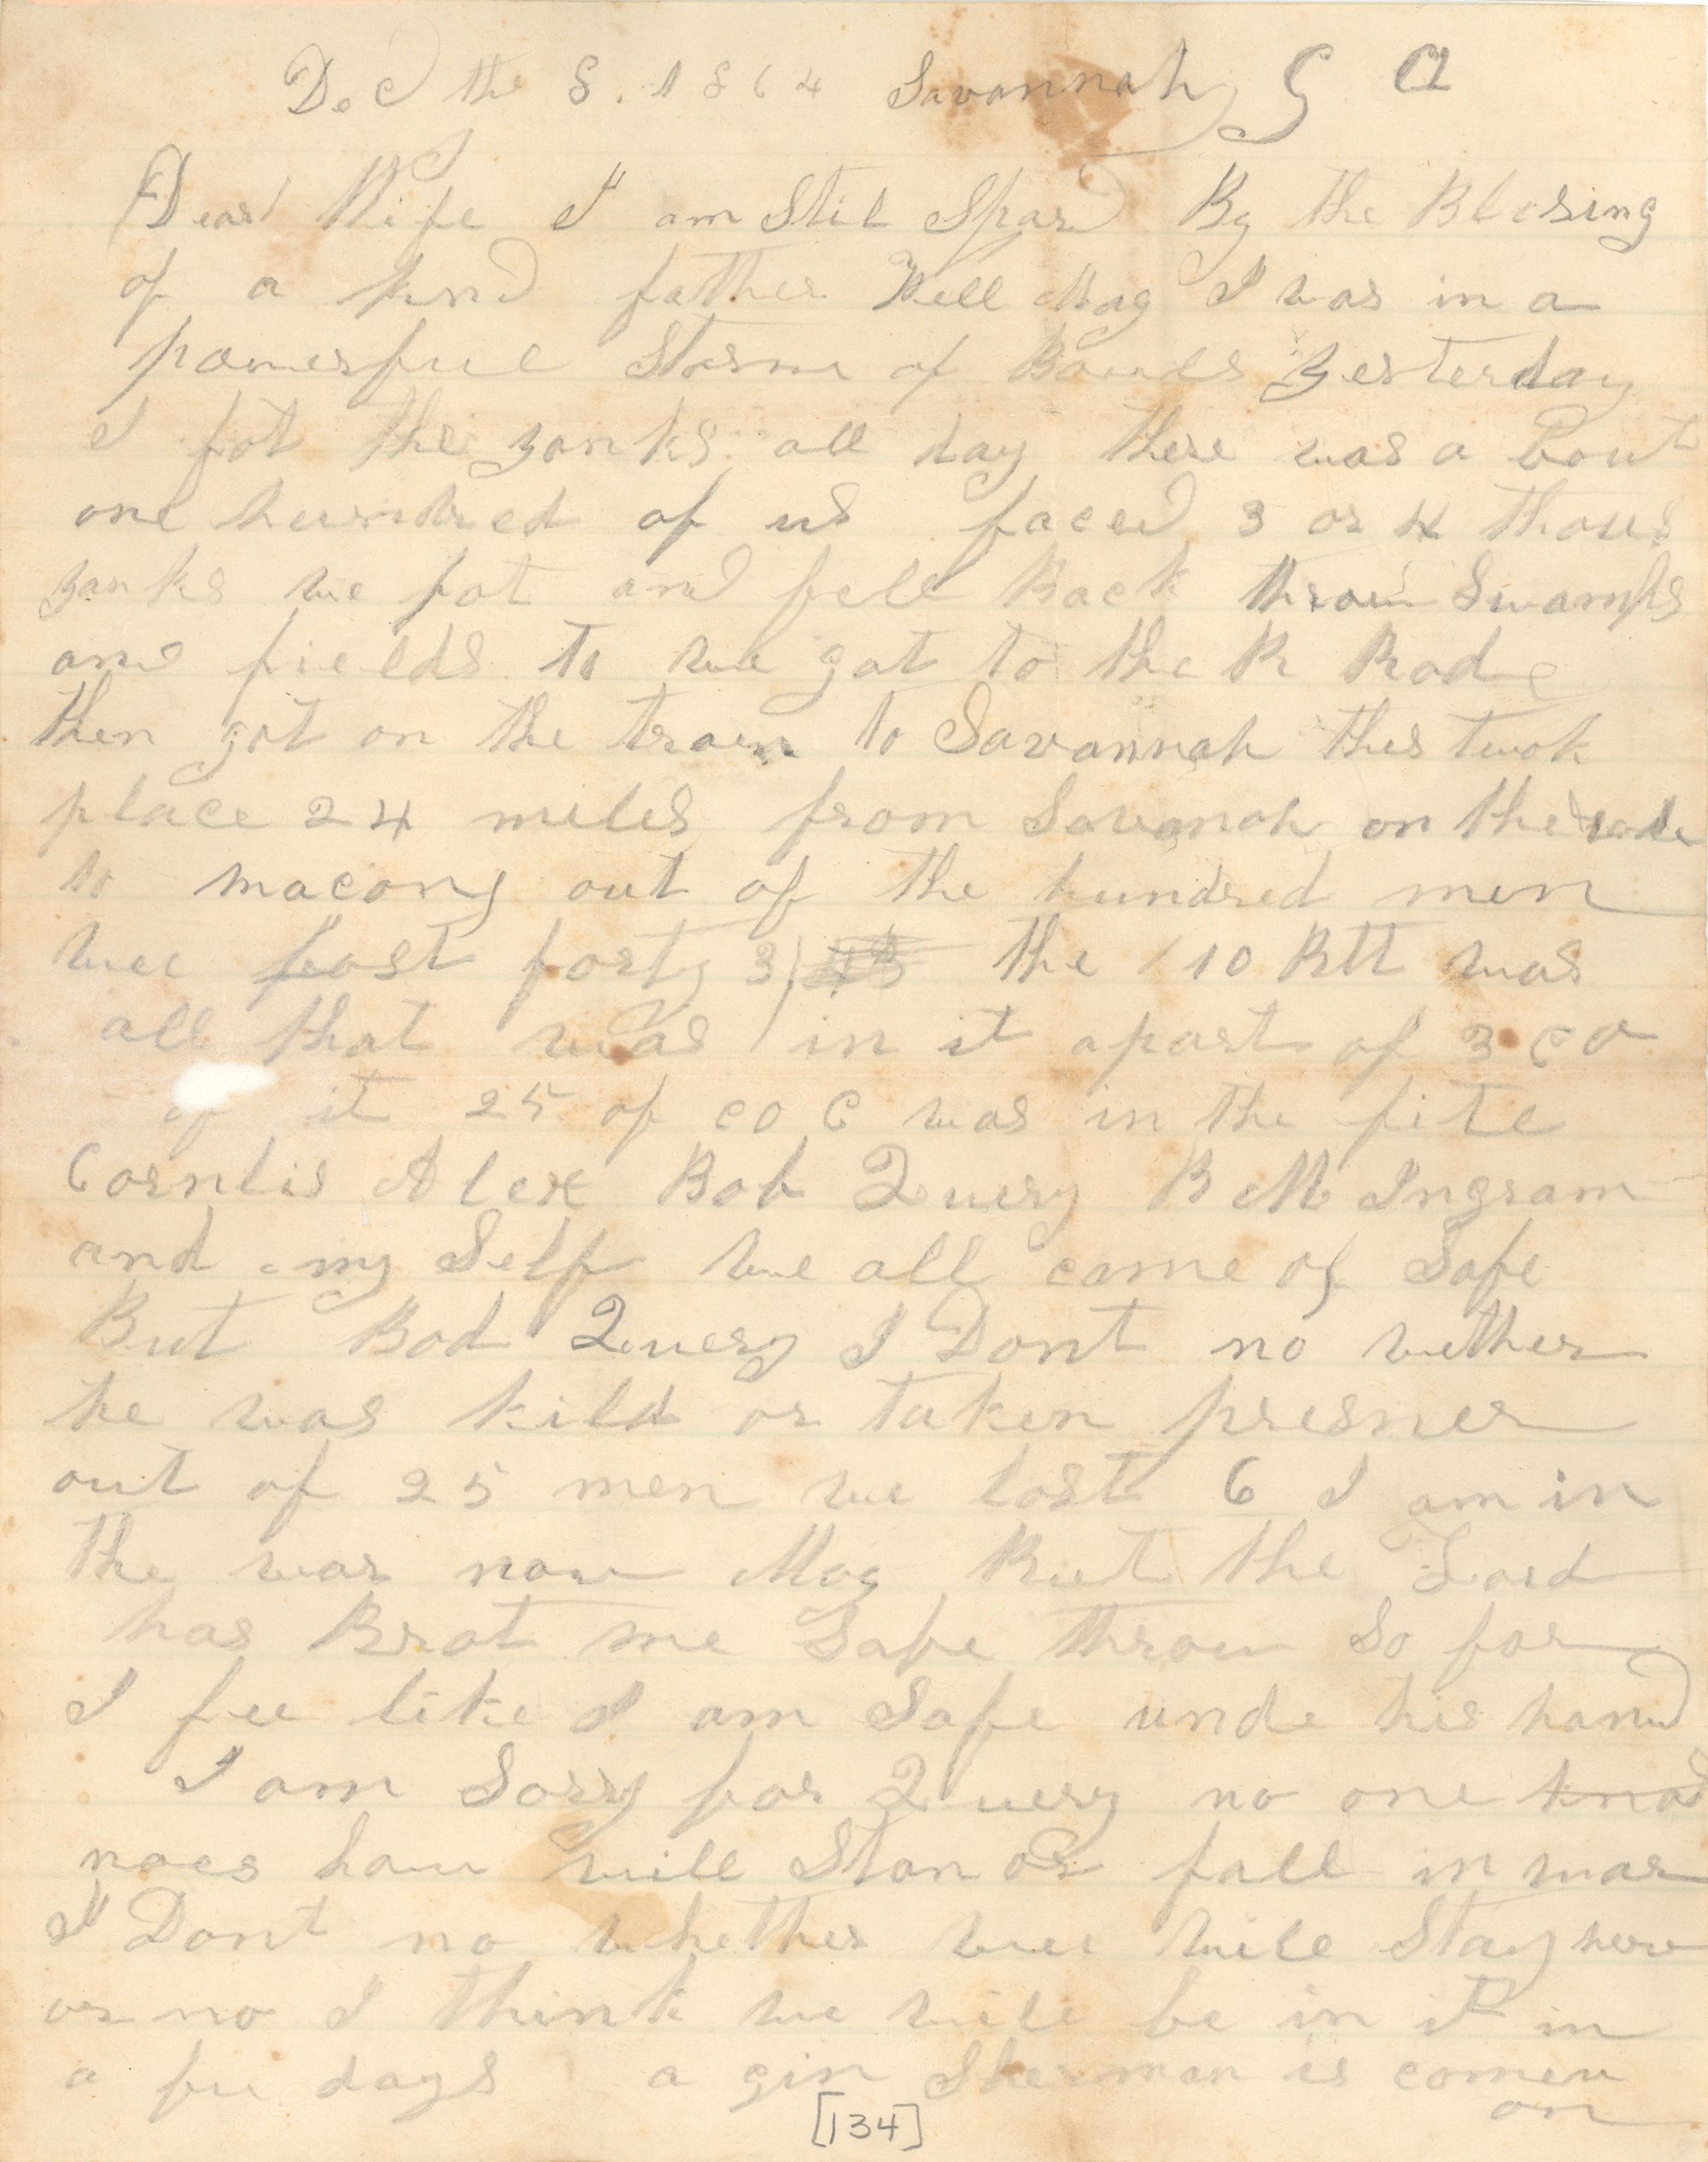 Dec the 8. 1864 Savannah G a
Dear Wife I am Stil Spard By the Blesing
of a kind father Well Mag I was in a
powerful Storm of Bauls yesterday
I fot the yanks all day there was a Bout
one hundred of us faced 3 or 4 thous
yanks we fot and fell Back throu Swamps
and fields to we got to the R Rode
then got on the train to Savannah this twok
place 24 miles from Savanah on the rode
to macong out of the hundred men
wee lost forty 3 the 10 Btt was
all that was in it apart of 3 co
of it 25 of co C was in the fite
Cornlis Alex Bob Query B M Ingram
and my Self we all came of Safe
But Bod Query I Dont no wether
he was kild or taken presner
out of 25 men we lost 6 I am in
the war now Mag But the Lord
has Brot me Safe throu So far
I fee like I am Safe unde his hand
I am Sorry for Query no one knos
noes hou will Stan or fall in war
I Dont no whether wee will Stay here
or no I think we will be in it in
a fu days a gin Sherman is comen
on
[134]